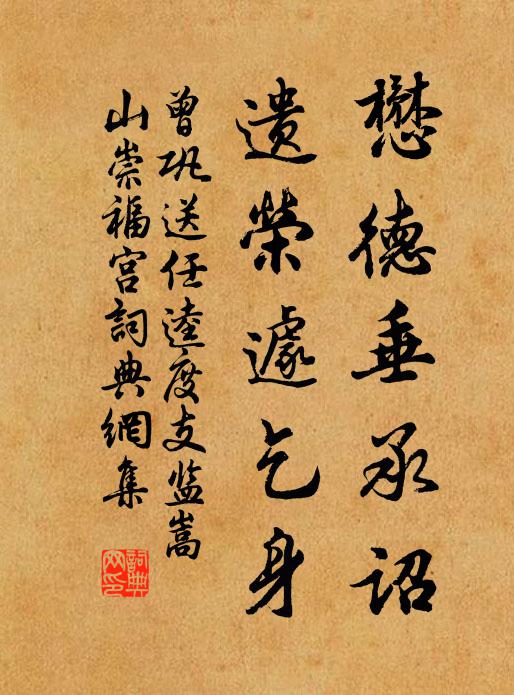 懋德垂承诏
遗荣遽乞身
曾巩送任逵度支监嵩
山崇福宫词典網集
詞典
网印